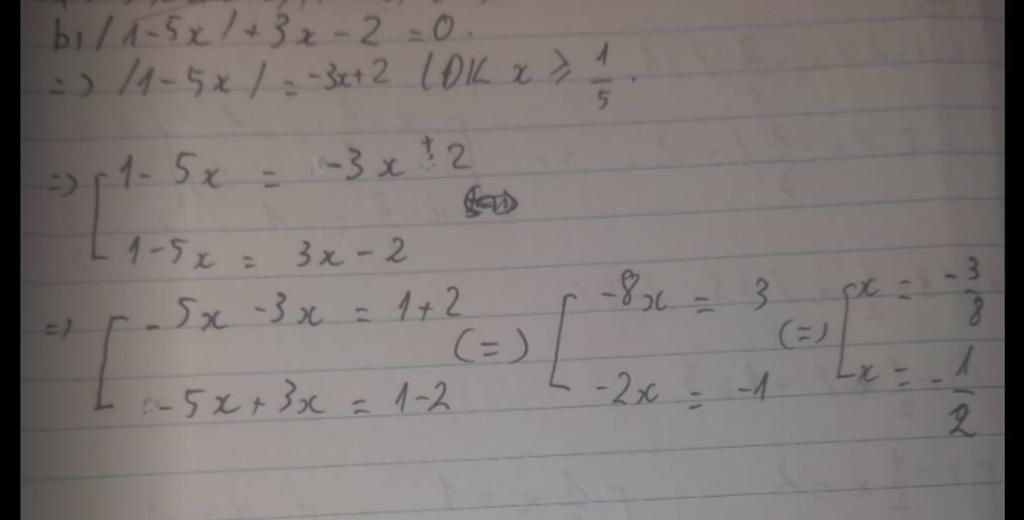 b, |1-5x| + 3x - 2 = 0.
=> |1-5x| = -3x+2 (ĐK x ≥ 1/5.
=> [ 1 - 5x = -3x + 2
1 - 5x = 3x - 2
=> [ -5x - 3x = 1+2 (=) [ -8x = 3 (=) [ x = -3/8
-5x + 3x = 1-2 -2x = -1 x = -1/2